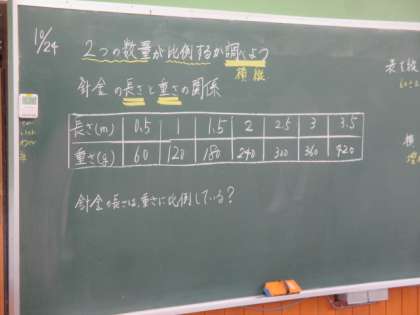 10/24
2つの数量が比例するか調べよう
横 縦
針金の長さと重さの関係
長さ(m) 0.5 1 1.5 2 2.5 3 3.5
重さ(g) 60 120 180 240 300 360 420
針金の長さは、重さに比例している?
長さ
横